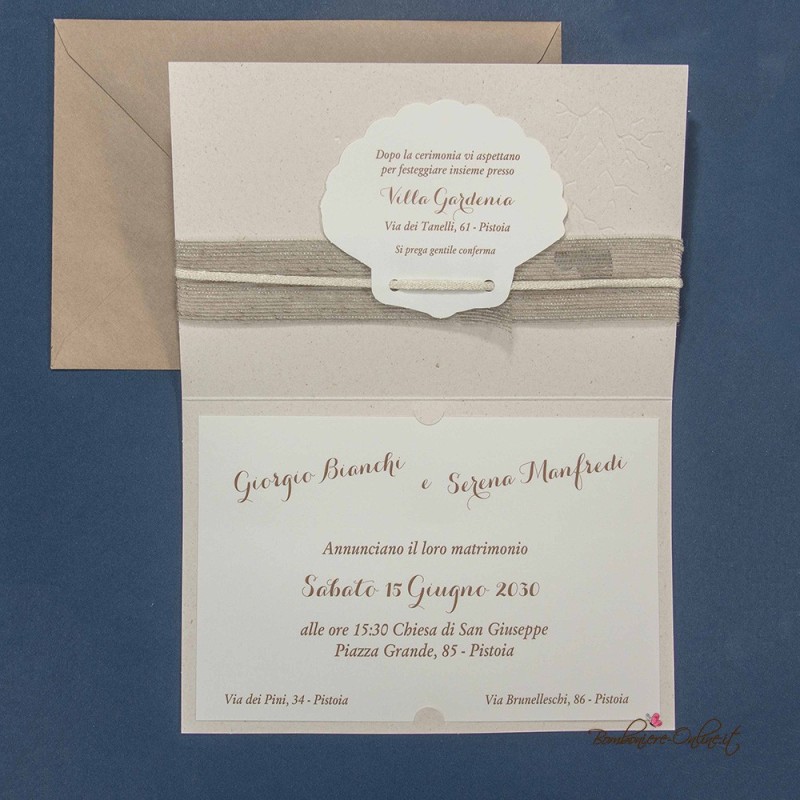 Dopo la cerimonia vi aspettano
per festeggiare insieme presso
Villa Gardenia
Via dei Tanelli, 61 - Pistoia
Si prega gentile conferma
Giorgio Bianchi e Serena Manfredi
Annunciano il loro matrimonio
Sabato 15 Giugno 2030
alle ore 15:30 Chiesa di San Giuseppe
Piazza Grande, 85 - Pistoia
Via dei Pini, 34 - Pistoia
Via Brunelleschi, 86 - Pistoia
Bomboniere-Online.it